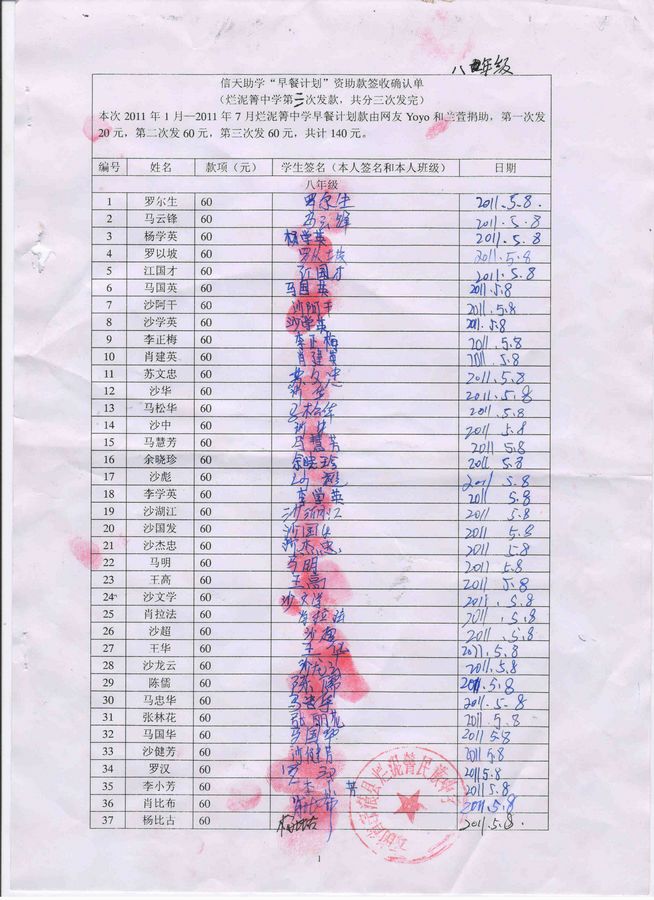 八年级
信天助学“早餐计划”资助款签收确认单
（烂泥箐中学第二次发款，共分三次发完）
本次 2011 年 1 月—2011 年 7 月烂泥箐中学早餐计划款由网友 Yoyo 和兰萱捐助，第一次发
20 元，第二次发 60 元，第三次发 60 元，共计 140 元。
编号 姓名 款项（元） 学生签名（本人签名和本人班级） 日期
八年级
1 罗尔生 60 罗尔生 2011.5.8.
2 马云锋 60 马云锋 2011.5.8
3 杨学英 60 杨学英 2011.5.8
4 罗以坡 60 罗以坡 2011.5.8
5 江国才 60 江国才 2011.5.8
6 马国英 60 马国英 2011.5.8
7 沙阿干 60 沙阿干 2011.5.8
8 沙学英 60 沙学英 2011.5.8
9 李正梅 60 李正梅 2011.5.8
10 肖建英 60 肖建英 2011.5.8
11 苏文忠 60 苏文忠 2011.5.8
12 沙华 60 沙华 2011.5.8
13 马松华 60 马松华 2011.5.8
14 沙中 60 沙中 2011 5.8
15 马慧芳 60 马慧芳 2011 5.8
16 余晓珍 60 余晓珍 2011 5.8
17 沙彪 60 沙彪 2011 5.8
18 李学英 60 李学英 2011 5.8
19 沙湖江 60 沙湖江 2011 5.8
20 沙国发 60 沙国发 2011 5.8
21 沙杰忠 60 沙杰忠 2011 5.8
22 马明 60 马明 2011 5.8
23 王高 60 王高 2011 5.8
24 沙文学 60 沙文学 2011.5.8
25 肖拉法 60 肖拉法 2011.5.8
26 沙超 60 沙超 2011.5.8
27 王华 60 王华 2011.5.8
28 沙龙云 60 沙龙云 2011.5.8
29 陈儒 60 陈儒 2011.5.8
30 马忠华 60 马忠华 2011.5.8
31 张林花 60 张朋花 2011.5.8
32 马国华 60 马国华 2011 5.8
33 沙健芳 60 沙健芳 2011 5.8
34 罗汉 60 罗汉 2011 5.8
35 李小芳 60 李小芳 2011 5.8
36 肖比布 60 肖比布 2011.5.8
37 杨比古 60 杨比古 2011.5.8.
1